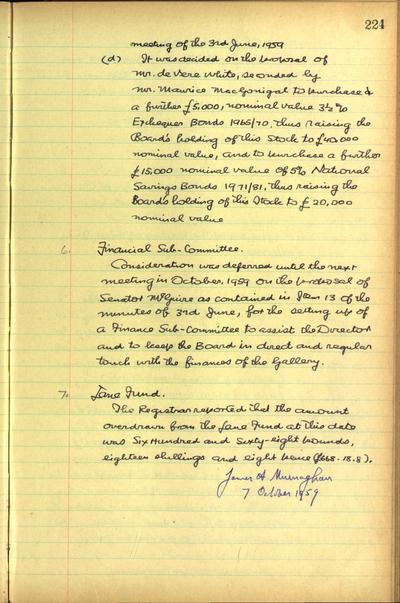 224
meeting of the 3rd June, 1959
(d) It was decided on the proposal of
Mr. de Vere White, seconded by
Mr. Maurice MacGonigal to purchase
a further £5,000, nominal value 3½%
Exchequer Bonds 1965/70, thus raising the
Board's holding of this Stock to £40,000
nominal value, and to purchase a further
£15,000 nominal value of 5% National
Savings Bonds 1971/81, thus raising the
Board's holding of this Stock to £20,000
nominal value
6. Financial Sub-Committee.
Consideration was deferred until the next
meeting in October, 1959 on the proposal of
Senator McGuire as contained in Item 13 of the
minutes of 3rd June, for the setting up of
a Finance Sub-Committee to assist the Director
and to keep the Board in direct and regular
touch with the finances of the Gallery.
7. Lane Fund.
The Registrar reported that the amount
overdrawn from the Lane Fund at this date
was Six Hundred and Sixty-eight pounds,
eighteen shillings and eight pence (£668.18.8).
James A Murnaghan
7 October 1959